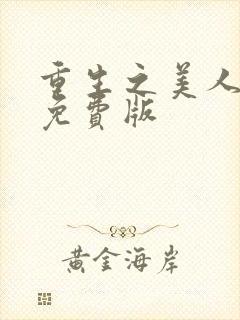 重生之美人
免費版
黃金海岸